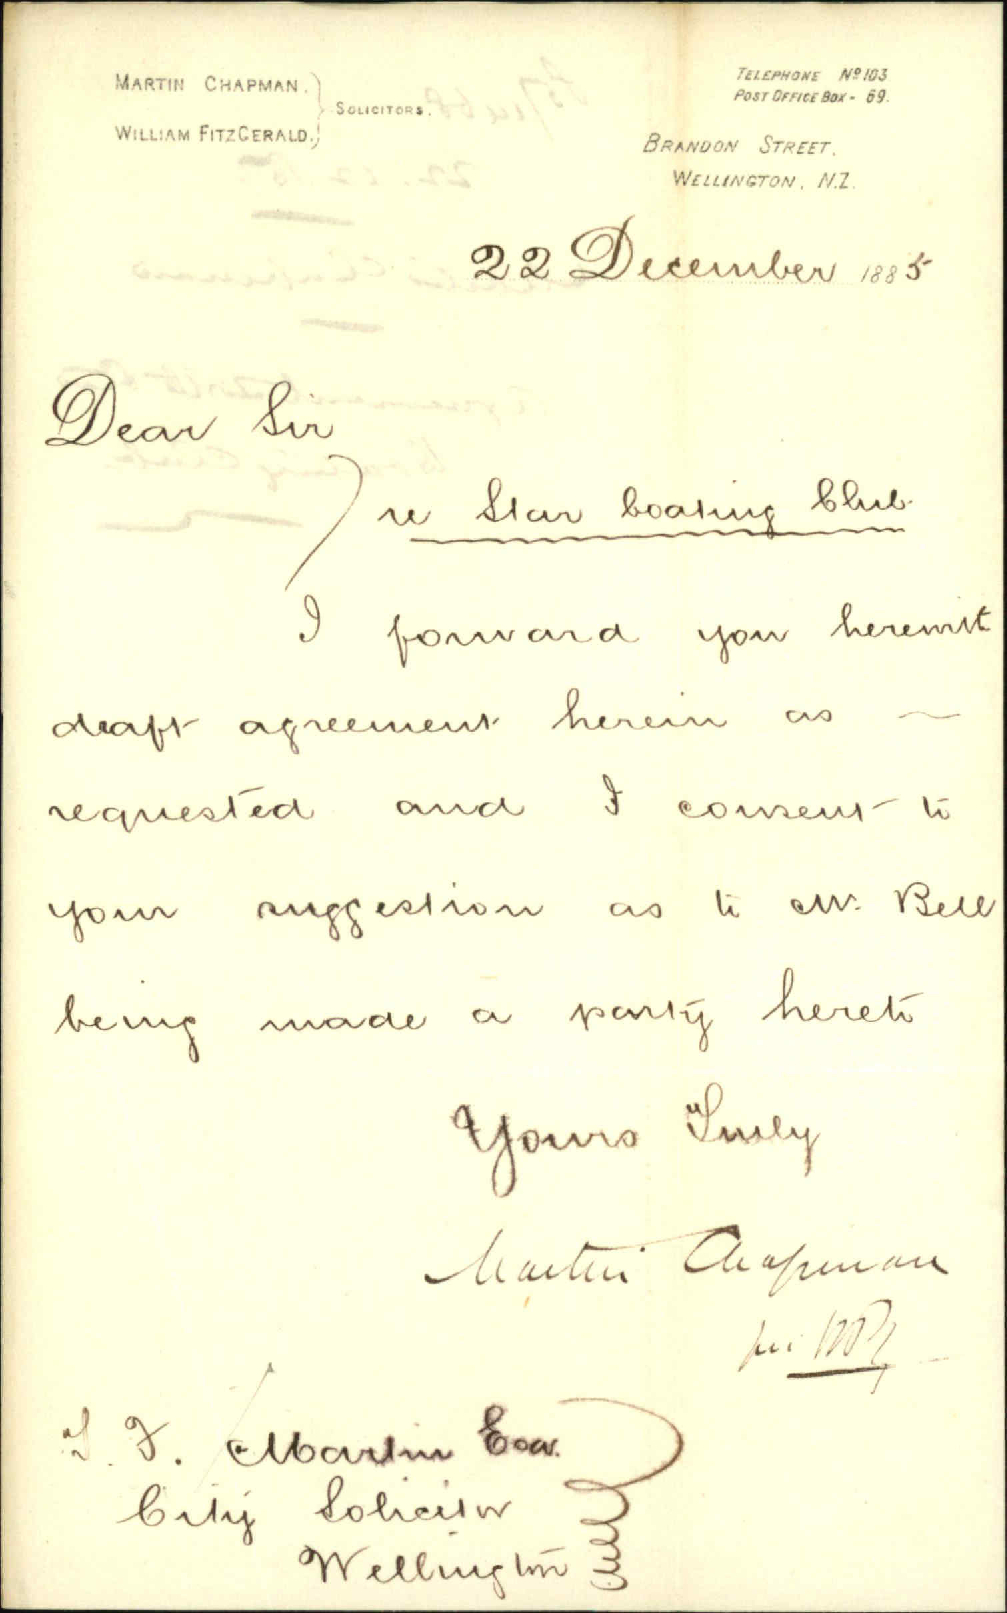 MARTIN CHAPMAN.
WILLIAM FITZGERALD.
SOLICITORS.
TELEPHONE No 103
POST OFFICE BOX - 69.
BRANDON STREET.
WELLINGTON. N.Z.
22 December 1885
Dear Sir
re Star Boating Club
I forward you herewith
draft agreement herein as
requested and I consent to
your suggestion as to Mr. Bell
being made a party hereto
Yours Truly
Martin Chapman
per
T. F. Martin Esq.
City Solicitor
Wellington